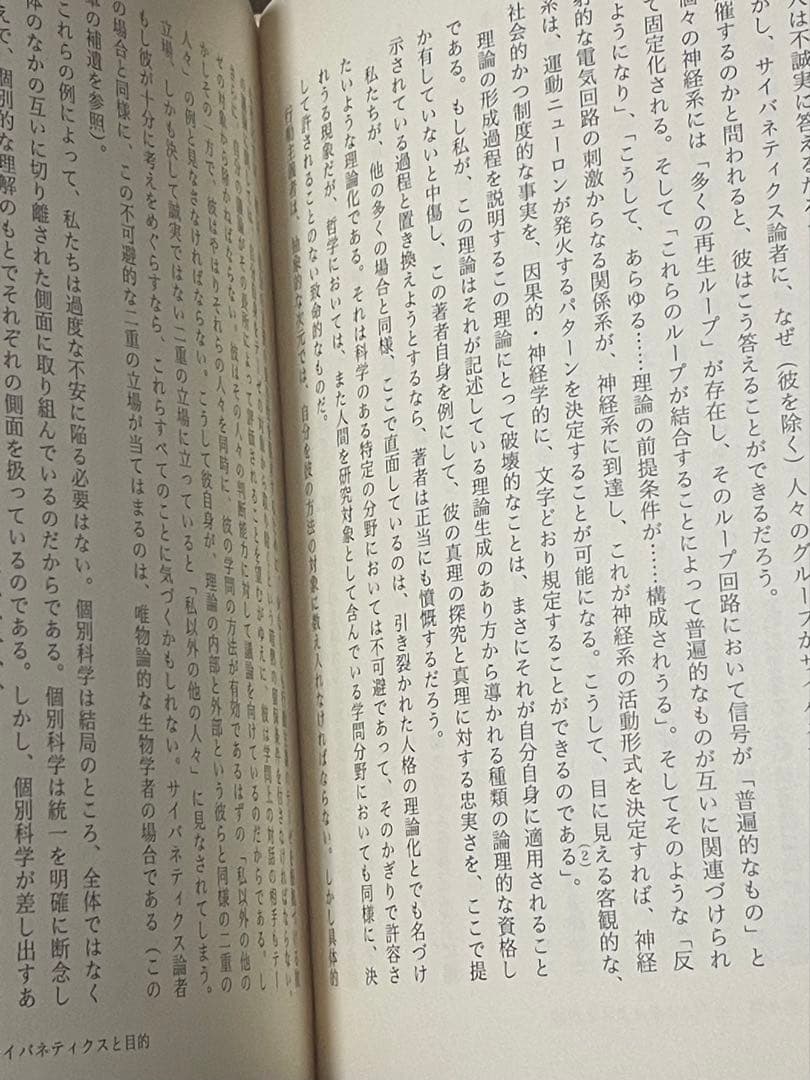 人は不誠実に答えるだろ
かし、サイバネティクス論者に、なぜ(彼を除く)人々のグループが
催するのかと問われると、彼はこう答えることができるだろう。
個々の神経系には「多くの再生ループ」が存在し、そのループ回路において信号が「普遍的なもの」と
て固定化される。そして「これらのループが結合することによって普遍的なものが互いに関連づけられ
ようになり」、「こうして、あらゆる……理論の前提条件が……構成されうる」。そしてそのような「反
射的な電気回路の刺激からなる関係系が、神経系に到達し、これが神経系の活動形式を決定すれば、神経
系は、運動ニューロンが発火するパターンを決定することが可能になる。こうして、目に見える客観的な、
社会的かつ制度的な事実を、因果的・神経学的に、文字どおり規定することができるのである」。(2)
理論の形成過程を説明するこの理論にとって破壊的なことは、まさにそれが自分自身に適用されること
である。もし私が、この理論はそれが記述している理論生成のあり方から導かれる種類の論理的な資格し
か有していないと中傷し、この著者自身を例にして、彼の真理の探究と真理に対する忠実さを、ここで提
示されている過程と置き換えようとするなら、著者は正当にも憤慨するだろう。
私たちが、他の多くの場合と同様、ここで直面しているのは、引き裂かれた人格の理論化とでも名づけ
たいような理論化である。それは科学のある特定の分野においては不可避であって、そのかぎりで許容さ
れうる現象だが、哲学においては、また人間を研究対象として含んでいる学問分野においても同様に、決
して許されることのない致命的なものだ。
行動主義者は、抽象的な次元では、自分を彼の方法の対象に数え入れなければならない。しかし具体的
せの対象から除かねばならない。彼はその人々の判断能力に対して議論を向けているのだからである。し
かしその一方で、彼はやはりそれらの人々を同時に、彼の学問の方法が有効であるはずの「私以外の他の
人々」の例と見なさなければならない。こうして彼自身が、理論の内部と外部という彼らと同様の二重の
立場、しかも決して誠実ではない二重の立場に立っていると「私以外の他の人々」に見なされてしまう。
もし彼が十分に考えをめぐらすなら、これらすべてのことに気づくかもしれない。サイバネティクス論者
の場合と同様に、この不可避的な二重の立場が当てはまるのは、唯物論的な生物学者の場合である(この
章の補遺を参照)。
これらの例によって、私たちは過度な不安に陥る必要はない。個別科学は結局のところ、全体ではなく
体のなかの互いに切り離された側面に取り組んでいるのだからである。個別科学は統一を明確に断念し
えで、個別的な理解のもとでそれぞれの側面を扱っているのである。しかし、個別科学が差し出すあ
イバネティクスと目的